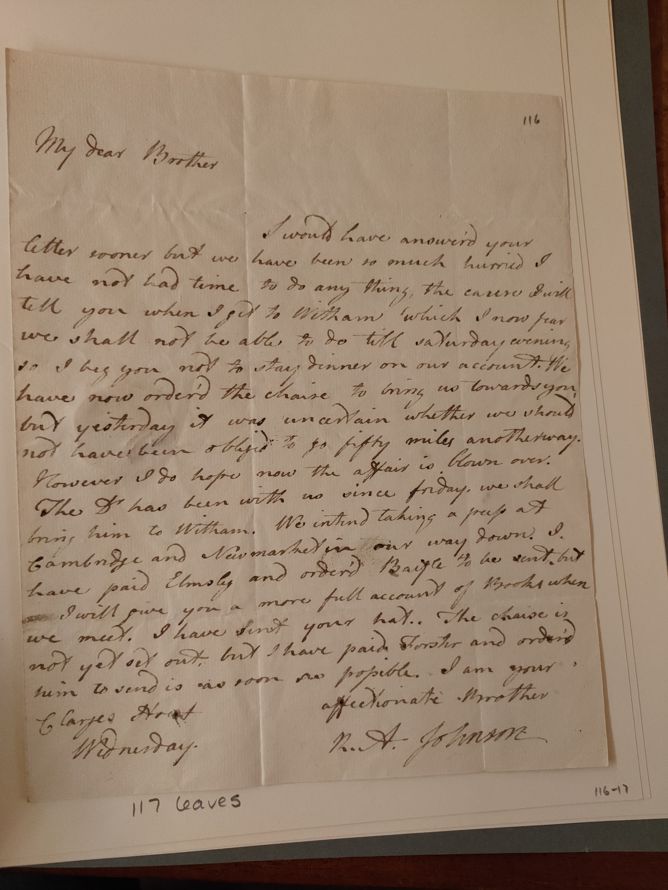 116
My dear Brother
I would have answer'd your
letter sooner but we have been so much hurried I
have not had time to do any thing, the cause I will
tell you when I get to Witham which I now fear
we shall not be able to do till saturday evening
so I beg you not to stay dinner on our account. We
have now order'd the chaise to bring us towards you,
but yesterday it was uncertain whether we should
not have been oblig'd to go fifty miles another way.
However I do hope now the affair is blown over.
The Dr has been with us since friday. we shall
bring him to Witham. We intend taking a peep at
Cambridge and Newmarket in our way down. I
have paid Elmsly and order'd Bayle to be sent, but
I will give you a more full account of Books when
we meet. I have sent your hat.. The chaise is
not yet set out, but I have paid and order'd
him to send is as soon as possible. I am your
affectionate Brother
Clarges
Wednesday.
R. A. Johnson
117 leaves
116-17